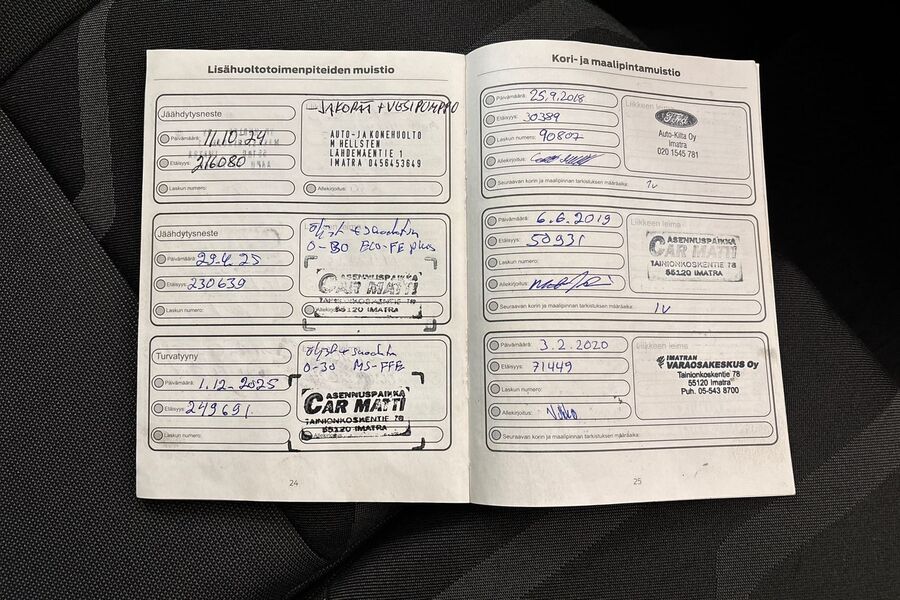 Lisähuoltotoimenpiteiden muistio
Jäähdytysneste
JAKOPÄÄ + VESIPUMPPU
Päivämäärä: 11.10.24
Etäisyys: 216080
Laskun numero:
AUTO-JA KONEHUOLTO
M HELLSTEN
LÄHDEMÄENTIE 1
IMATRA 0456453649
Allekirjoitus:
Jäähdytysneste
Öljyt + suodatin
0-30 ECO-FE plus
Päivämäärä: 29.4.25
Etäisyys: 230639
Laskun numero:
ASENNUSPAIKKA
CAR MATTI
TAINIONKOSKENTIE 78
55120 IMATRA
Turvatyyny
Öljyt + suodatin
0-30 MS-FFE
Päivämäärä: 1.12-2025
Etäisyys: 249691
Laskun numero:
ASENNUSPAIKKA
CAR MATTI
TAINIONKOSKENTIE 78
55120 IMATRA
24
Kori- ja maalipintamuistio
Päivämäärä: 25.9.2018
Etäisyys: 30389
Laskun numero: 90807
Allekirjoitus:
Liikkeen leima
Ford
Auto-Kilta Oy
Imatra
020 1545 781
Seuraavan korin ja maalipinnan tarkistuksen määräaika: 1v
Päivämäärä: 6.6.2019
Etäisyys: 50931
Laskun numero:
Allekirjoitus:
Liikkeen leima
ASENNUSPAIKKA
CAR MATTI
TAINIONKOSKENTIE 78
55120 IMATRA
Seuraavan korin ja maalipinnan tarkistuksen määräaika: 1v
Päivämäärä: 3.2.2020
Etäisyys: 71449
Laskun numero:
Allekirjoitus:
Liikkeen leima
IMATRAN
VARAOSAKESKUS Oy
Tainionkoskentie 78
55120 Imatra
Puh. 05-543 8700
Seuraavan korin ja maalipinnan tarkistuksen määräaika:
25